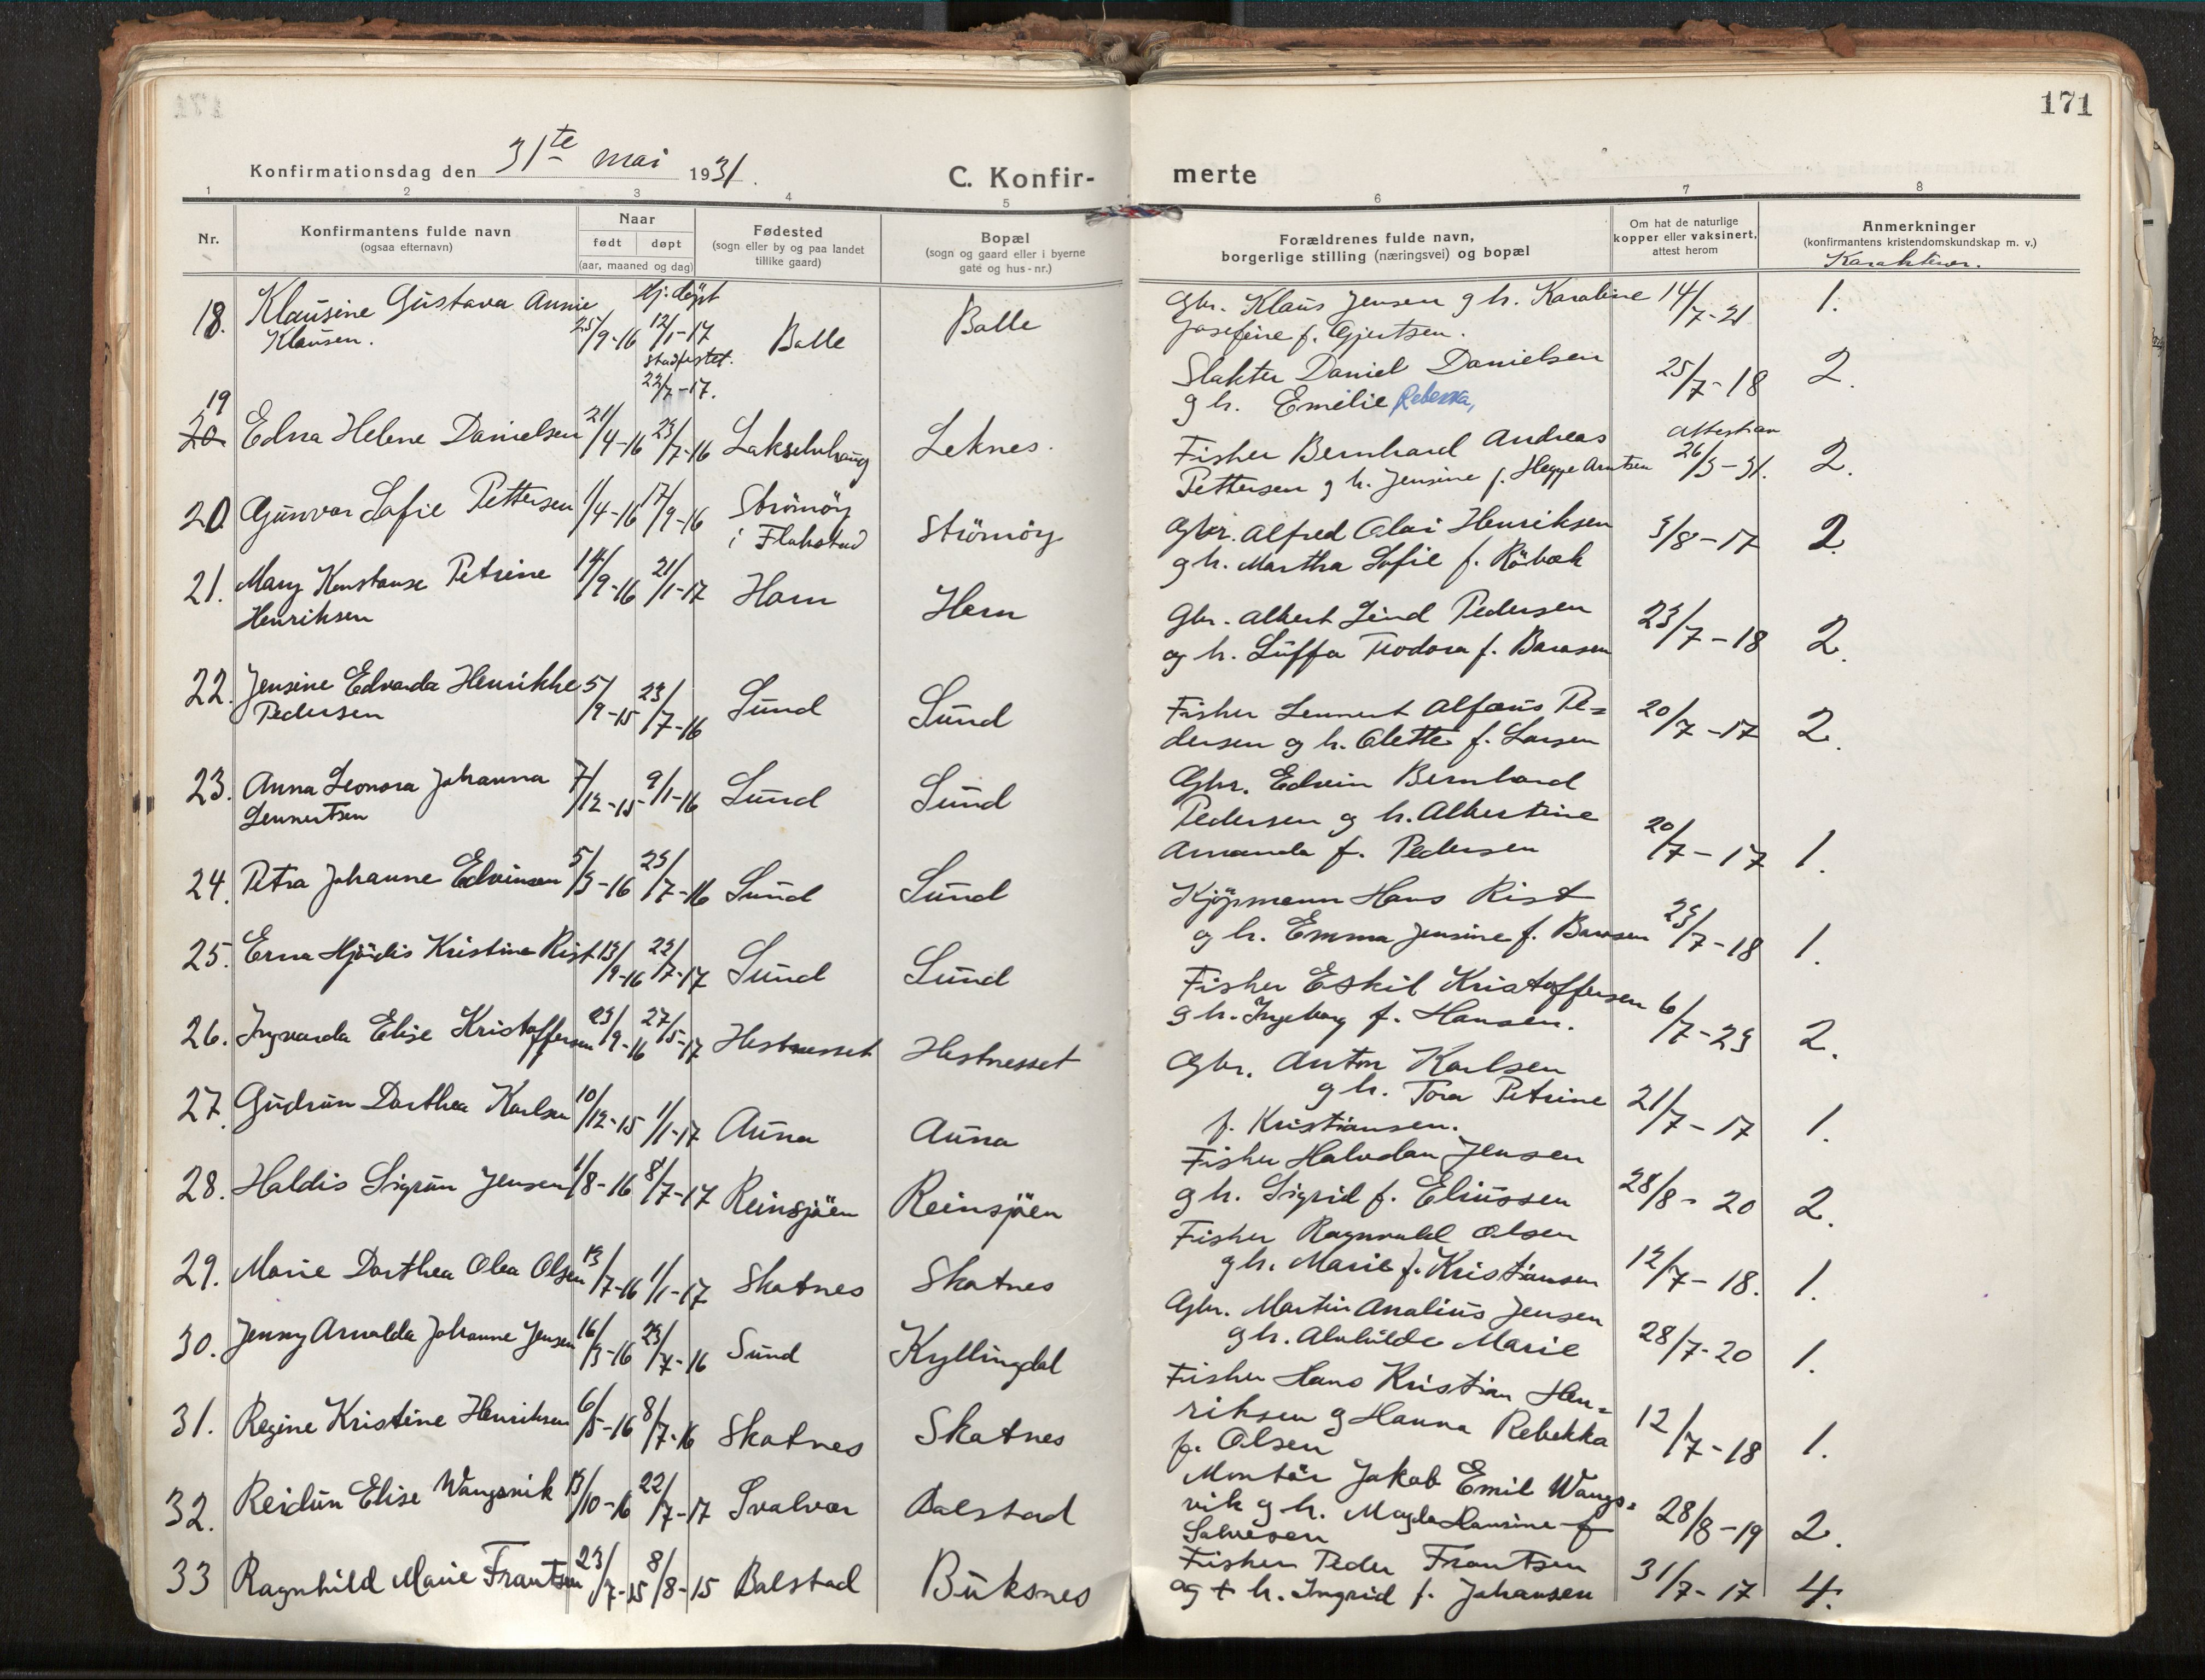 171
Konfirmationsdag den 31te mai 1931.
C. Konfir-
merte
1 2 3 4 5 6 7 8
Nr.
Konfirmantens fulde navn
(ogsaa efternavn)
Naar
født døpt
(aar, maaned og dag)
Fødested
(sogn eller by og paa landet
tillike gaard)
Bopæl
(sogn og gaard eller i byerne
gate og hus-nr.)
Forældrenes fulde navn,
borgerlige stilling (næringsvei) og bopæl
Om hat de naturlige
kopper eller vaksinert,
attest herom
Anmerkninger
(konfirmantens kristendomskundskap m. v.)
Karakterer.
18. Klausine Gustava Annie 25/9-16 Hj. døpt 12/1-17 Balle Balle
Klausen.
stadfestet.
22/7-17.
Gbr. Klaus Jensen g h. Karoline 14/7-21 1.
Josefine f. Gjertsen.
19
20 Edna Helene Danielsen 21/4-16 23/7-16 Lakselvhaug Leknes.
Slakter Daniel Danielsen 25/7-18 2.
g h. Emelie Rebekka,
20 Gunvor Sofie Pettersen 1/4-16 17/9-16 Strömöy Strömöy
i Flakstad
Fisker Bernhard Andreas attest av
Pettersen g h. Jensine f. Hegge Arntsen 26/3-31. 2.
21. Mary Konstanse Petrine 14/9-16 21/1-17 Horn Horn
Henriksen
Gbr. Alfred Olai Henriksen 3/8-17 2.
g h. Martha Sofie f. Röbak
22. Jensine Edvarda Henrikke 5/9-15 23/7-16 Sund Sund
Pedersen
Gbr. Albert Lind Pedersen 23/7-18 2.
og h. Luffa Teodora f. Barosen
23. Anna Leonora Johanna 7/12-15 9/1-16 Sund Sund
Lennertsen
Fisker Lennert Alfæus Pe=
dersen og h. Olette f. Larsen 20/7-17 2.
24. Petra Johanne Edvinsen 5/3-16 23/7-16 Sund Sund
Gbr. Edvin Bernhard
Pedersen g h. Albertine
Amanda f. Pedersen 20/7-17 1.
25. Erna Hjördis Kristine Rist 13/9-16 22/7-17 Sund Sund
Kjöpmann Hans Rist
og h. Emma Jensine f. Barosen 23/7-18 1.
26. Ingvarda Elise Kristoffersen 23/9-16 27/5-17 Hestnesset Hestnesset
Fisker Eskil Kristoffersen 6/7-23 2.
g h. Ingeborg f. Hansen.
27. Gudrun Dorthea Karlsen 10/12-15 1/1-17 Auna Auna
Gbr. Anton Karlsen
g h. Tora Petrine 21/7-17 1.
f. Kristiansen.
28. Haldis Sigrun Jensen 1/8-16 8/7-17 Reinsjöen Reinsjöen
Fisker Halvdan Jensen
g h. Sigrid f. Eliussen 28/8-20 2.
29. Marie Dorthea Olea Olsen 13/7-16 1/1-17 Skotnes Skotnes
Fisker Ragnvald Olsen
g h. Marie f. Kristiansen 12/7-18. 1.
30. Jenny Arnolda Johanne Jensen 16/3-16 23/7-16 Sund Kyllingdal
Gbr. Martin Analius Jensen
g h. Alvhilde Marie 28/7-20 1.
31. Regine Kristine Henriksen 6/5-16 8/7-16 Skotnes Skotnes
Fisker Hans Kristian Hen=
riksen g Hanna Rebekka 12/7-18 1.
f. Olsen
32. Reidun Elise Wangsvik 13/10-16 22/7-17 Svolvær Balstad
Montör Jakob Emil Wangs=
vik g h. Magda Hansine f 28/8-19 2.
Salvesen
33 Ragnhild Marie Frantsen 23/7-15 8/8-15 Balstad Buksnes
Fisker Peder Frantsen 31/7-17 4.
og + h. Ingrid f. Johansen